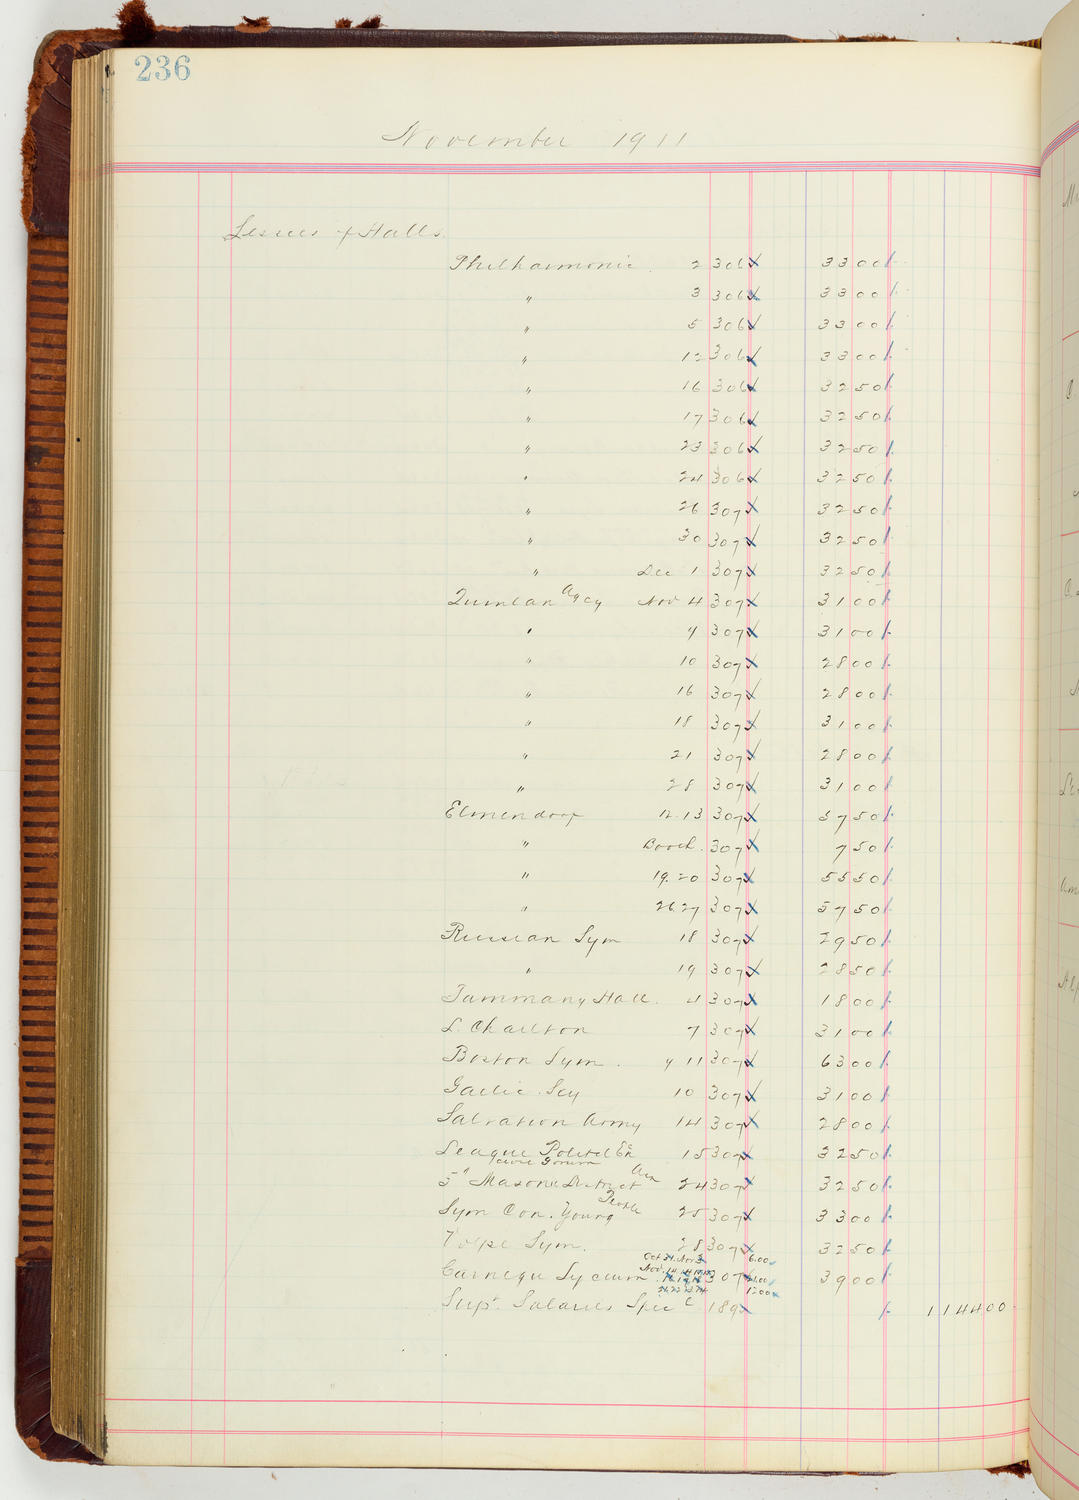 236
November 1911
Lessees of Halls.
Philharmonic 2 306 3300
" 3 306 3300
" 5 306 3300
" 12 306 3300
" 16 306 3250
" 17 306 3250
" 23 306 3250
" 24 306 3250
" 26 307 3250
" 30 307 3250
" Dec 1 307 3250
Quinlan Agcy Nov 4 307 3100
" 9 307 3100
" 10 307 2800
" 16 307 2800
" 18 307 3100
" 21 307 2800
" 28 307 3100
Elmendorf 12.13 307 5750
" Booth. 307 750
" 19.20 307 5550
" 26.27 307 5750
Russian Sym 18 307 2950
" 19 307 2850
Tammany Hall. 4 307 1800
L. Charlton 7 307 3100
Boston Sym. 9 11 307 6300
Gaelic Scy 10 307 3100
Salvation Army 14 307 2800
League Political Ed 15 307 3250
Civic Forum
5" Masonic District Assn 24 307 3250
Sym Con. Young People 25 307 3300
Volpe Sym. 28 307 3250
Oct Nov 6.00
Carnegie Lyceum 307 3900
12.00
Supt. Salaries Spec'l 189 114400